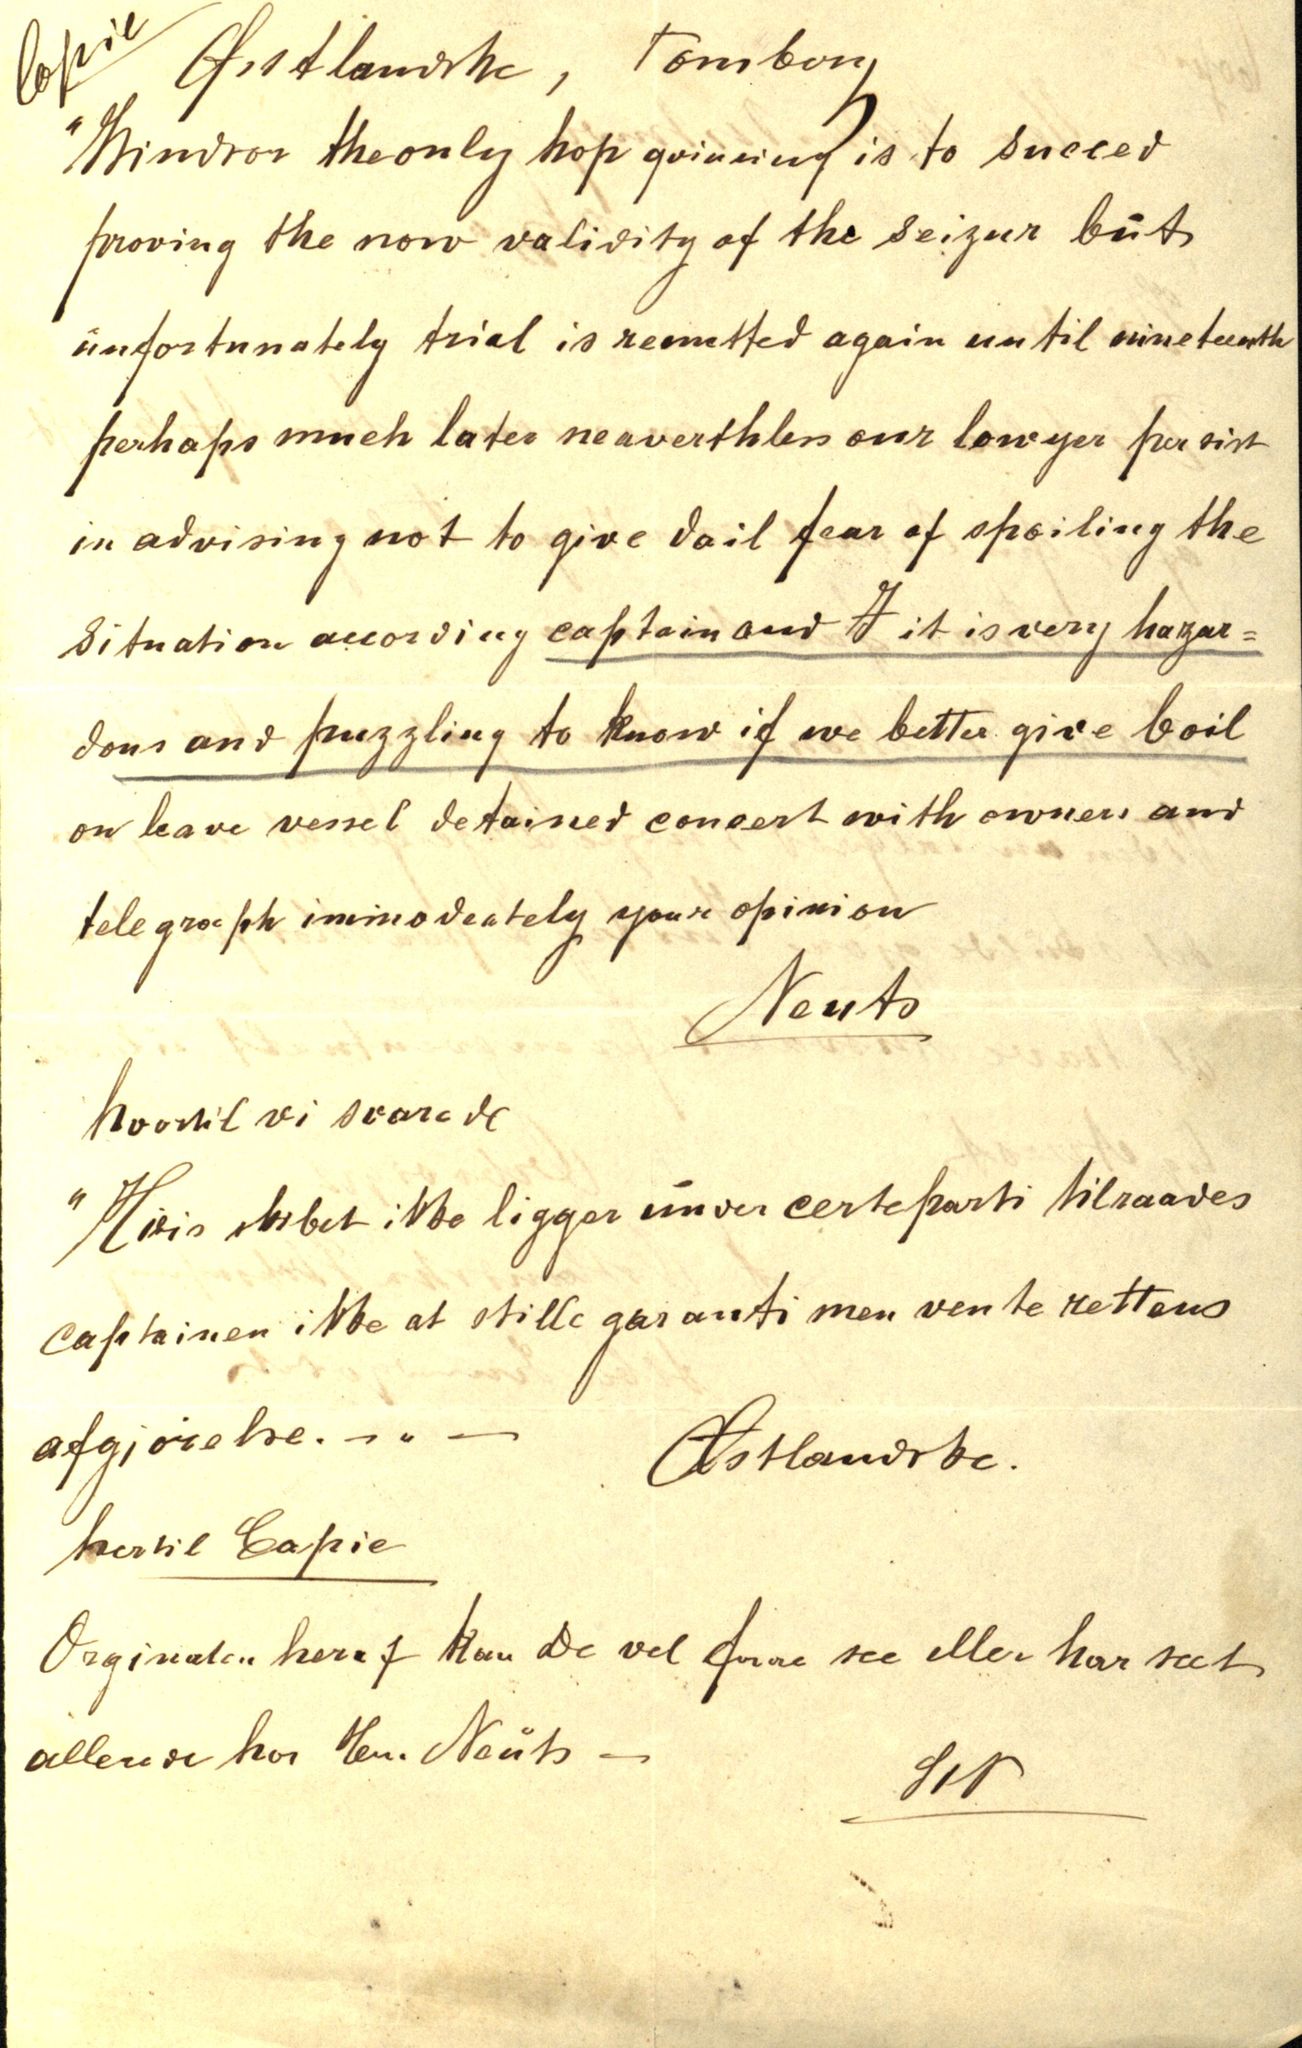 Copie
Østlandske, Tømsborg
"Windsor the only hop gvinning is to succed
proving the now validity of the seizur but
unfortunately trial is remitted again until nineteenth
perhaps much later neaverthless our lowyer persist
in advising not to give bail fear of spoiling the
situation according captain and I it is very hazar=
dous and puzzling to know if we better give bail
or leave vessel detained concert with owners and
telegraph immodeately your opinion
Neuts
hvortil vi svarede
"Hvis skibet ikke ligger under certeparti tilraades
captainen ikke at stille garanti men vente rettens
afgjörelse. — " —
Østlandske.
hertil Copie
Orginalen heraf kan De vel faae see eller har seet
allerede hos Herr. Neuts —